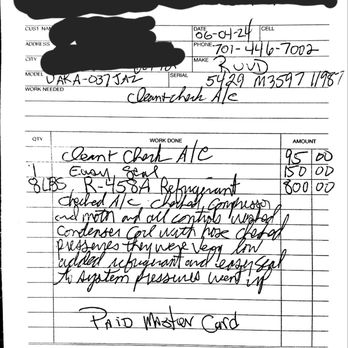 CUST NAME
DATE 06-04-24 CELL
ADDRESS PHONE 701-446-7002
CITY MAKE RUUD
MODEL UAKA-037JAZ SERIAL 5429 M3597 11987
WORK NEEDED
Clean & check A/C
QTY WORK DONE AMOUNT
Clean & Check A/C 95 00
1 Easy Seal 150 00
8 LBS R-458A Refrigerant 800 00
Checked A/C checked Compressor
and motor and all controls washed
Condenser Coil with hose checked
pressures they were very low
added refrigerant and easy seal
to system pressures went up
PAID MASTER CARD